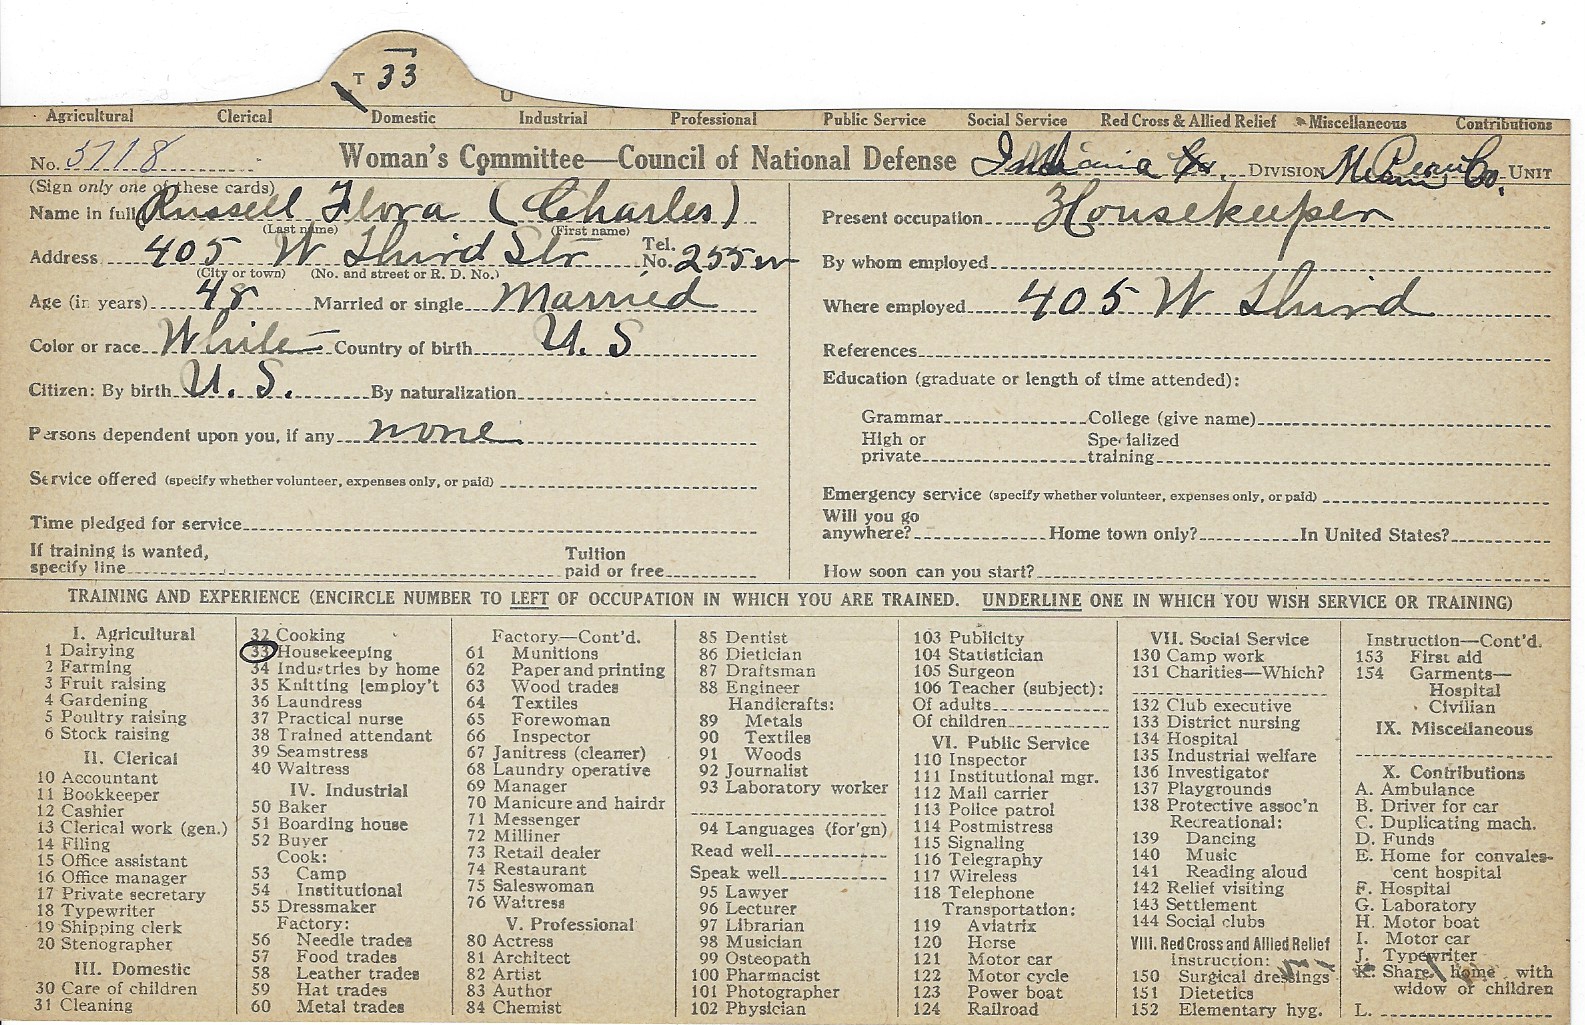 T 33
U
Agricultural Clerical Domestic Industrial Professional Public Service Social Service Red Cross & Allied Relief Miscellaneous Contributions
No. 3718 Woman's Committee—Council of National Defense Indiana DIVISION Peru Miami Co. UNIT
(Sign only one of these cards)
Name in full Russell Flora (Charles)
(Last name) (First name)
Address 405 W Third Str Tel. No. 255 w
(City or town) (No. and street or R. D. No.)
Age (in years) 48 Married or single Married
Color or race White Country of birth U. S
Citizen: By birth U. S. By naturalization
Persons dependent upon you, if any none
Service offered (specify whether volunteer, expenses only, or paid)
Time pledged for service
If training is wanted, specify line Tuition paid or free
Present occupation Housekeeper
By whom employed
Where employed 405 W Third
References
Education (graduate or length of time attended):
Grammar College (give name)
High or private Specialized training
Emergency service (specify whether volunteer, expenses only, or paid)
Will you go anywhere? Home town only? In United States?
How soon can you start?
TRAINING AND EXPERIENCE (ENCIRCLE NUMBER TO LEFT OF OCCUPATION IN WHICH YOU ARE TRAINED. UNDERLINE ONE IN WHICH YOU WISH SERVICE OR TRAINING)
I. Agricultural
1 Dairying
2 Farming
3 Fruit raising
4 Gardening
5 Poultry raising
6 Stock raising
II. Clerical
10 Accountant
11 Bookkeeper
12 Cashier
13 Clerical work (gen.)
14 Filing
15 Office assistant
16 Office manager
17 Private secretary
18 Typewriter
19 Shipping clerk
20 Stenographer
III. Domestic
30 Care of children
31 Cleaning
32 Cooking
33 Housekeeping
34 Industries by home
35 Knitting [employ't
36 Laundress
37 Practical nurse
38 Trained attendant
39 Seamstress
40 Waitress
IV. Industrial
50 Baker
51 Boarding house
52 Buyer
Cook:
53 Camp
54 Institutional
55 Dressmaker
Factory:
56 Needle trades
57 Food trades
58 Leather trades
59 Hat trades
60 Metal trades
Factory—Cont'd.
61 Munitions
62 Paper and printing
63 Wood trades
64 Textiles
65 Forewoman
66 Inspector
67 Janitress (cleaner)
68 Laundry operative
69 Manager
70 Manicure and hairdr
71 Messenger
72 Milliner
73 Retail dealer
74 Restaurant
75 Saleswoman
76 Waitress
V. Professional
80 Actress
81 Architect
82 Artist
83 Author
84 Chemist
85 Dentist
86 Dietician
87 Draftsman
88 Engineer
Handicrafts:
89 Metals
90 Textiles
91 Woods
92 Journalist
93 Laboratory worker
94 Languages (for'gn)
Read well
Speak well
95 Lawyer
96 Lecturer
97 Librarian
98 Musician
99 Osteopath
100 Pharmacist
101 Photographer
102 Physician
103 Publicity
104 Statistician
105 Surgeon
106 Teacher (subject):
Of adults
Of children
VI. Public Service
110 Inspector
111 Institutional mgr.
112 Mail carrier
113 Police patrol
114 Postmistress
115 Signaling
116 Telegraphy
117 Wireless
118 Telephone
Transportation:
119 Aviatrix
120 Horse
121 Motor car
122 Motor cycle
123 Power boat
124 Railroad
VII. Social Service
130 Camp work
131 Charities—Which?
132 Club executive
133 District nursing
134 Hospital
135 Industrial welfare
136 Investigator
137 Playgrounds
138 Protective assoc'n
Recreational:
139 Dancing
140 Music
141 Reading aloud
142 Relief visiting
143 Settlement
144 Social clubs
VIII. Red Cross and Allied Relief
Instruction:
150 Surgical dressings
151 Dietetics
152 Elementary hyg.
Instruction—Cont'd.
153 First aid
154 Garments—
Hospital
Civilian
IX. Miscellaneous
X. Contributions
A. Ambulance
B. Driver for car
C. Duplicating mach.
D. Funds
E. Home for convales-
cent hospital
F. Hospital
G. Laboratory
H. Motor boat
I. Motor car
J. Typewriter
K. Share home with
widow or children
L.